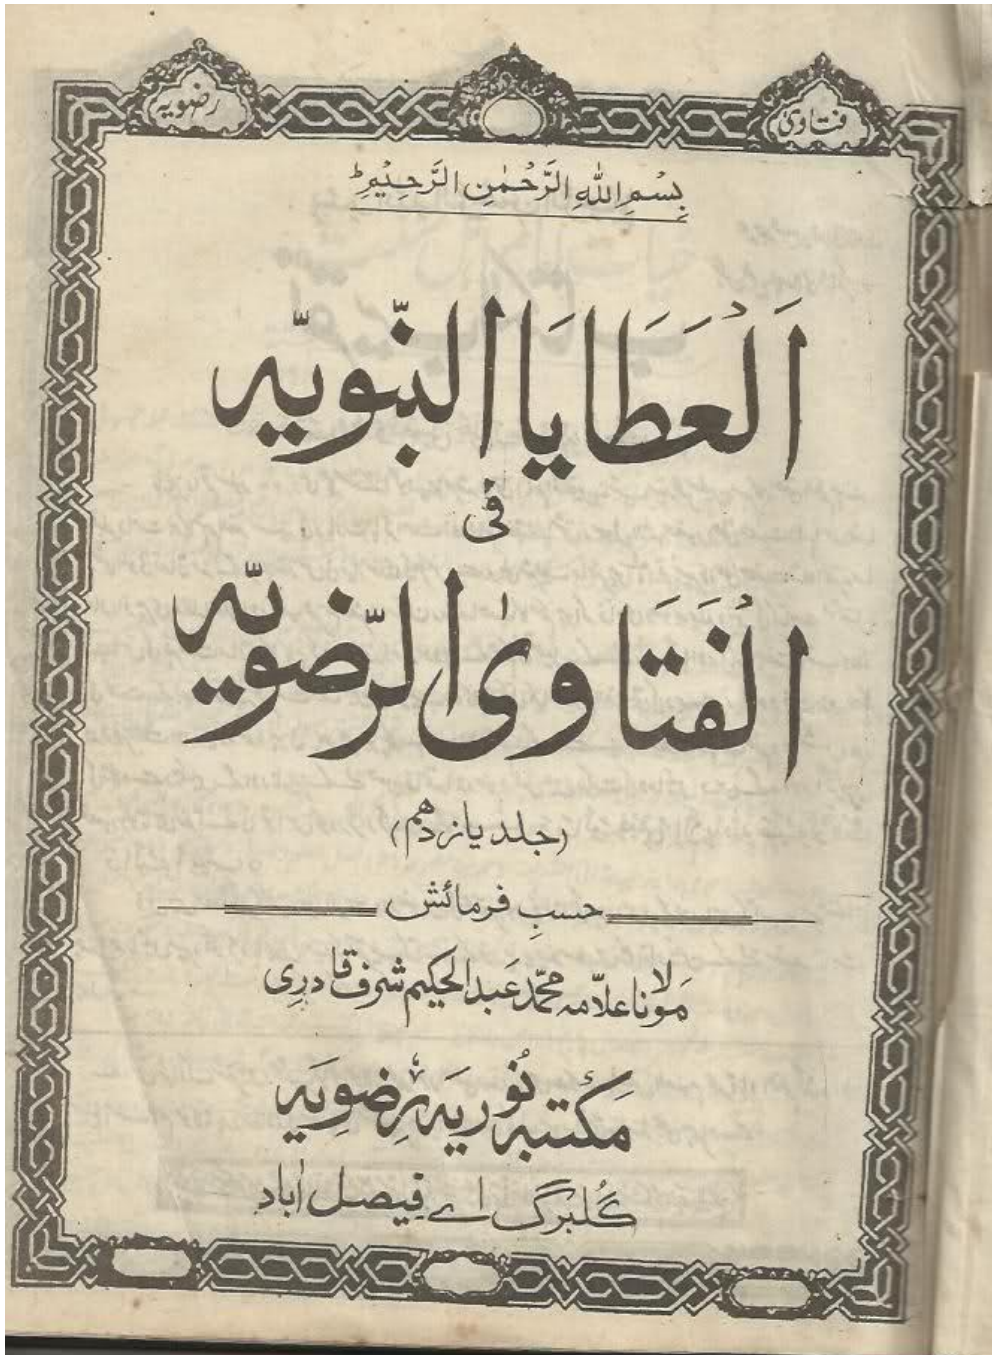 فتاویٰ
رضویہ
بِسْمِ اللهِ الرَّحْمٰنِ الرَّحِیْمِ ط
اَلْعَطَايَا النَّبَوِيَّہ
فِی
اَلْفَتَاوَی الرَّضَوِيَّہ
(جلد یازدھم)
حسبِ فرمائش
مولانا علّامہ محمّد عبدالحکیم شرف قادری
مکتبہ نُوریہ رضویہ
گلبرگ اے فیصل اٰباد